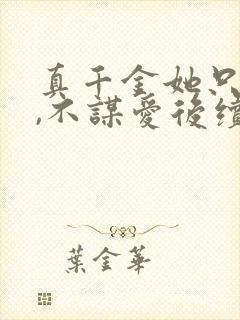 真千金她只
,不謀愛後續
葉金華